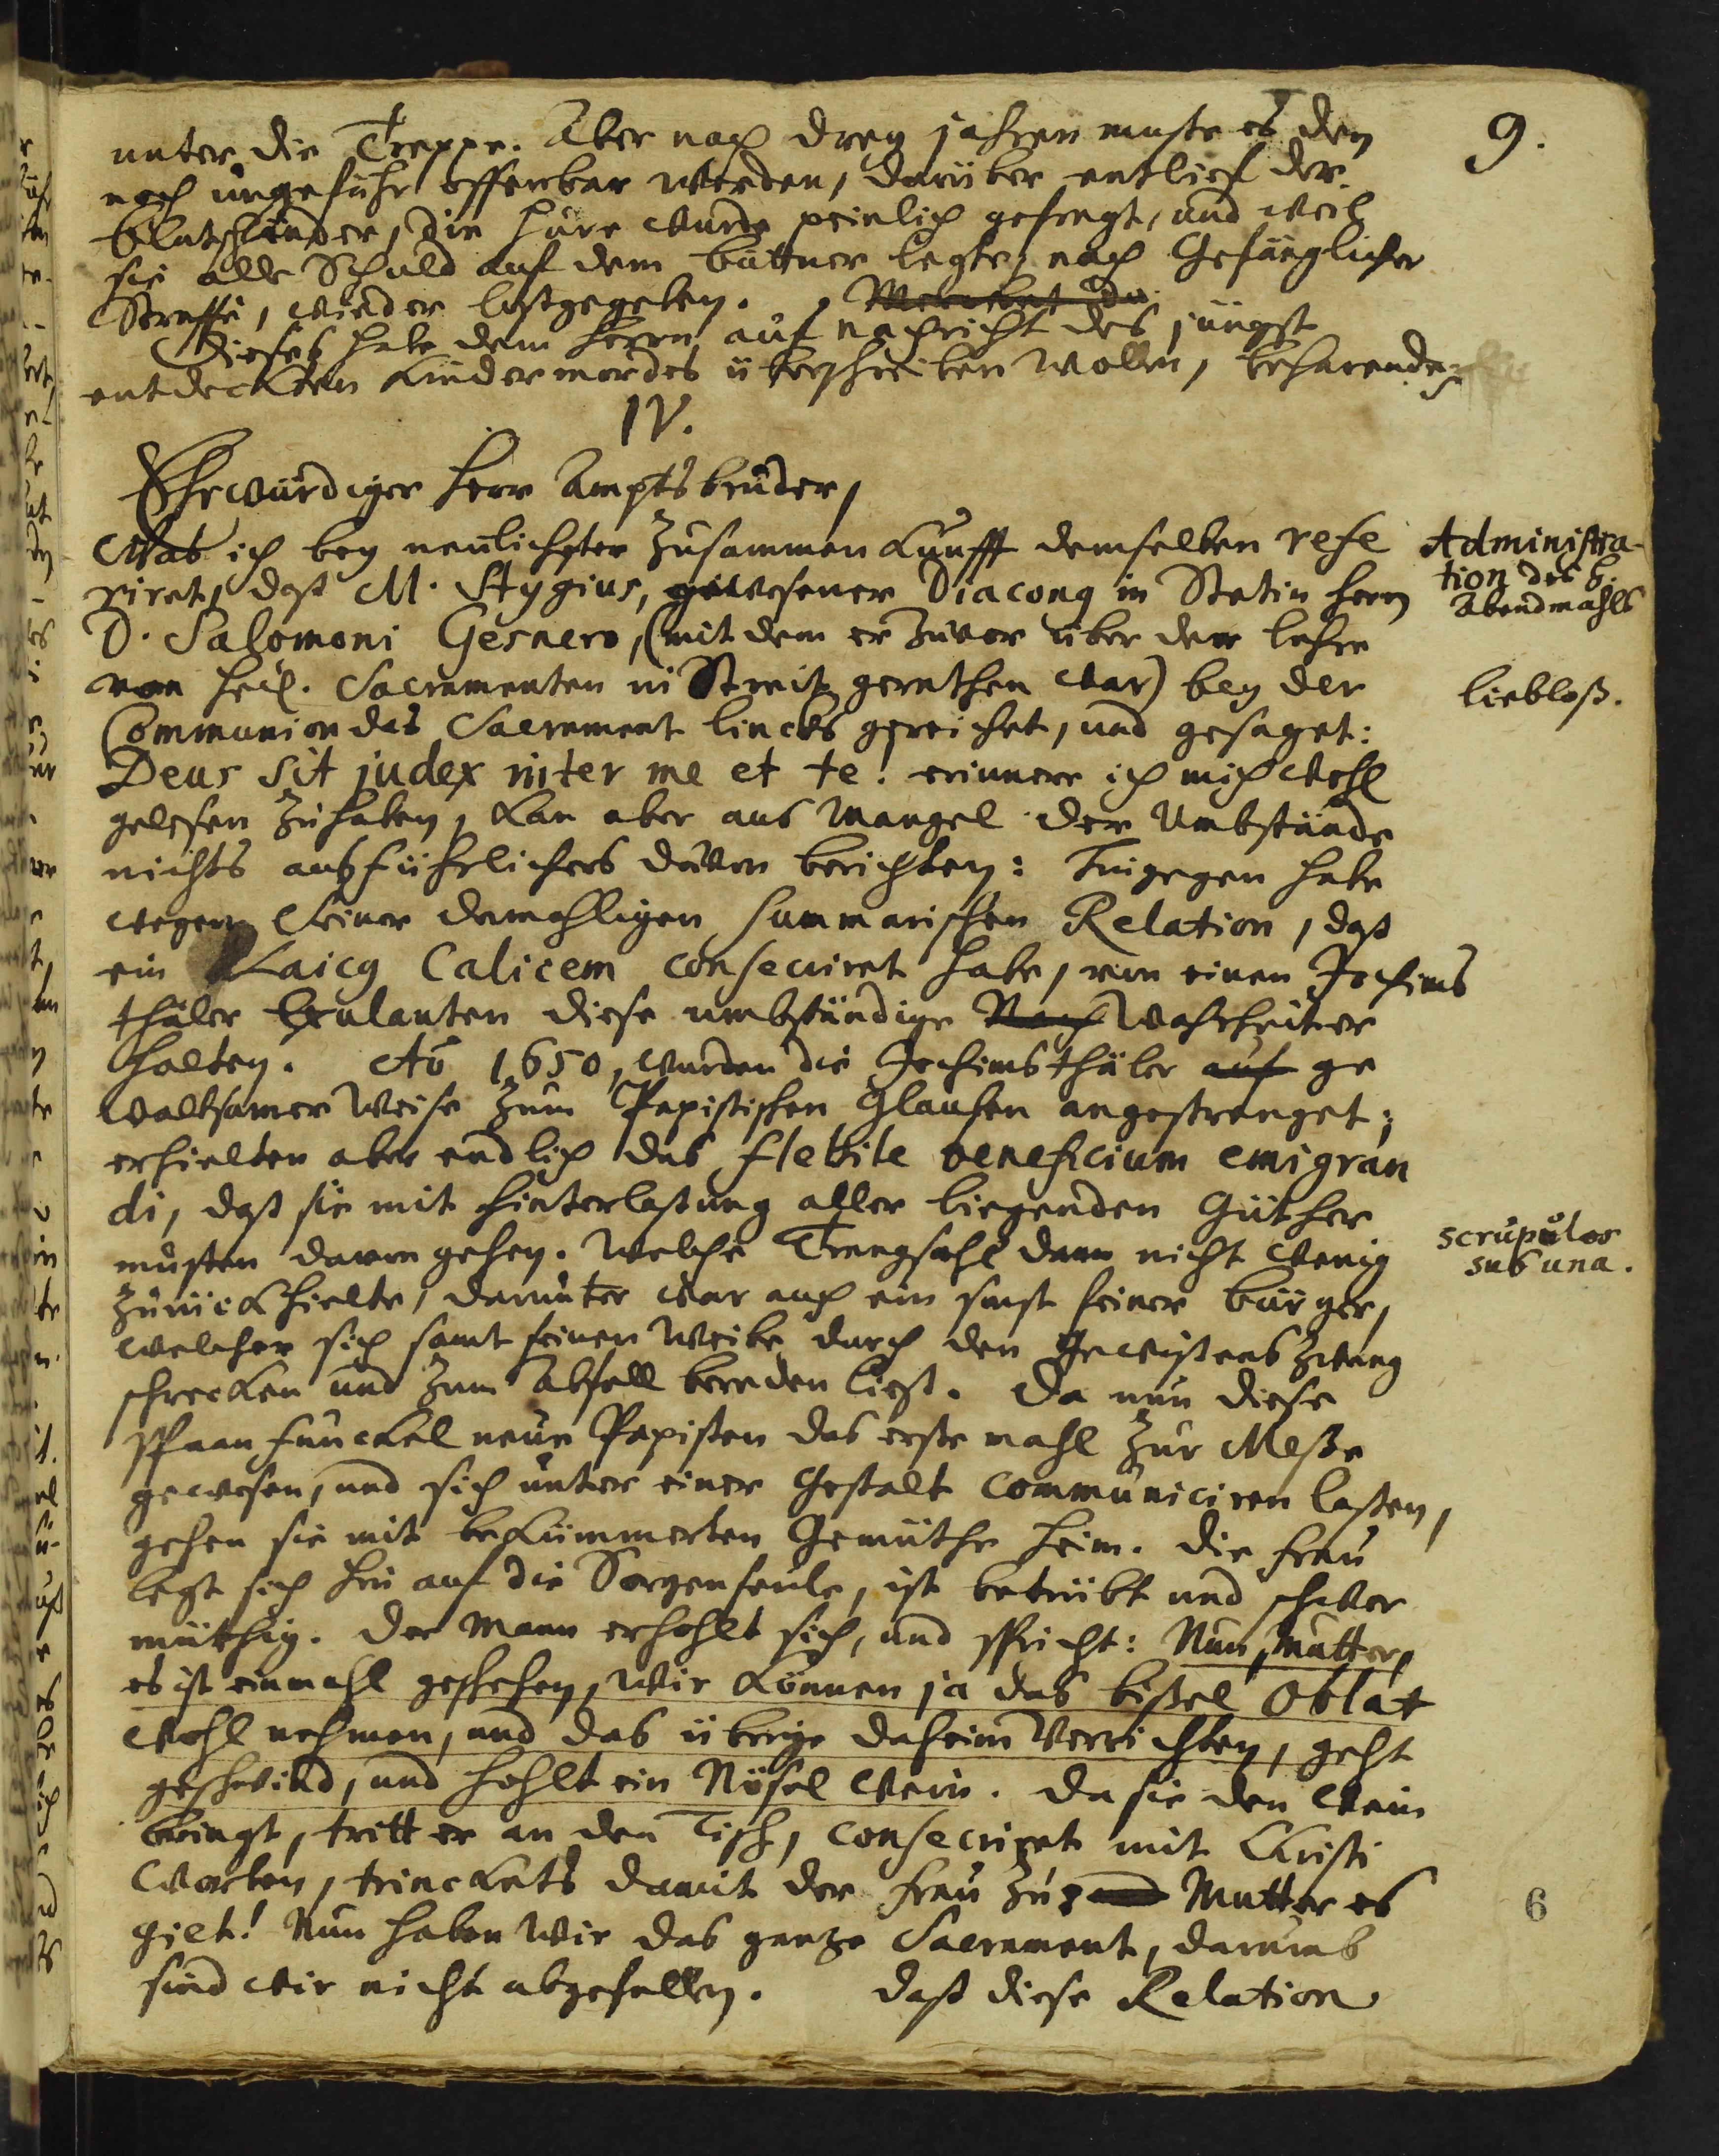 9.
unter die Treppe. Aber nach drey jahren muste es den
noch ungefähr offenbar werden, darüber entlief der
blutschänder, die Hure wurde peinlich gefragt, und weil
sie alle Schuld auf dem büttner legte, nach Gefänglicher
Straffe, wieder loßgegeben.
Dieses habe dem Herrn auf nachricht des jüngst
entdeckten Kindermordes überschreiben wollen, beharende
IV.
Ehrwürdiger Herr Ampts bruder,
Was ich bey neulichster Zusammen Kunfft demselben refe
riret, daß M. Stygius, gewesener Diacong in Stetin Herrn
D. Salomoni Gesnero, (mit dem er zuvor über der lehre
von heil. Sacramenten in Streit gerathen war) bey der
Communion das Sacrament lincks gereichet, und gesaget:
Deus sit judex inter me et te! erinnere ich mich wohl
gelesen zu haben, kan aber aus Mangel der Umbstände
nichts ausführlichers davon berichten: Hingegen habe
wegen Seiner damahligen summarischen Relation, daß
ein Laicq Calicem consecriret habe, von einen Jochims
thäler Exulanten diese umbständige Nach Wahrheit er
halten. Aõ 1650, wurden die Jochimsthäler auf ge
waltsamer Weise zum Papistischen Glauben angestrenget;
erhielten aber endlich das flebile beneficium emigran
di, daß sie mit hinterlaßung aller liegenden Güther
musten davon gehen. Welche Trangsahl dann nicht wenig
zurück hielte, darunter war auch ein sonst feiner bürger,
welcher sich samt seinen Weibe durch den Gewißens zwang
schrecken und zum Abfall bereden ließ. Da nun diese
span funckel neue Papisten das erste mahl zur Meße
gewesen, und sich unter einer Gestalt communiciren laßen,
gehen sie mit bekümmerten Gemüthe heim. Die Frau
legt sich hin auf die Sorgenseule, ist betrübt und schwer
müthig. Der Mann erhohlt sich, und spricht: Nun, Mutter,
es ist einmahl geschehen, wir können ja das bißel Oblat
wohl nehmen, und das übrige daheim verrichten, geht
geschwind, und hohlt ein Nösel Wein. Da sie den Wein
bringt, tritt er an den Tisch, consecriret mit Christi
Worten, trinckets damit der Frau zu: Mutter es
gilt! Nun haben wir das gantze Sacrament, darumb
sind wir nicht abgefallen. Daß diese Relation
Administra-
tion des H.
Abendmahls
liebloß.
scrupulos
sub una.
6